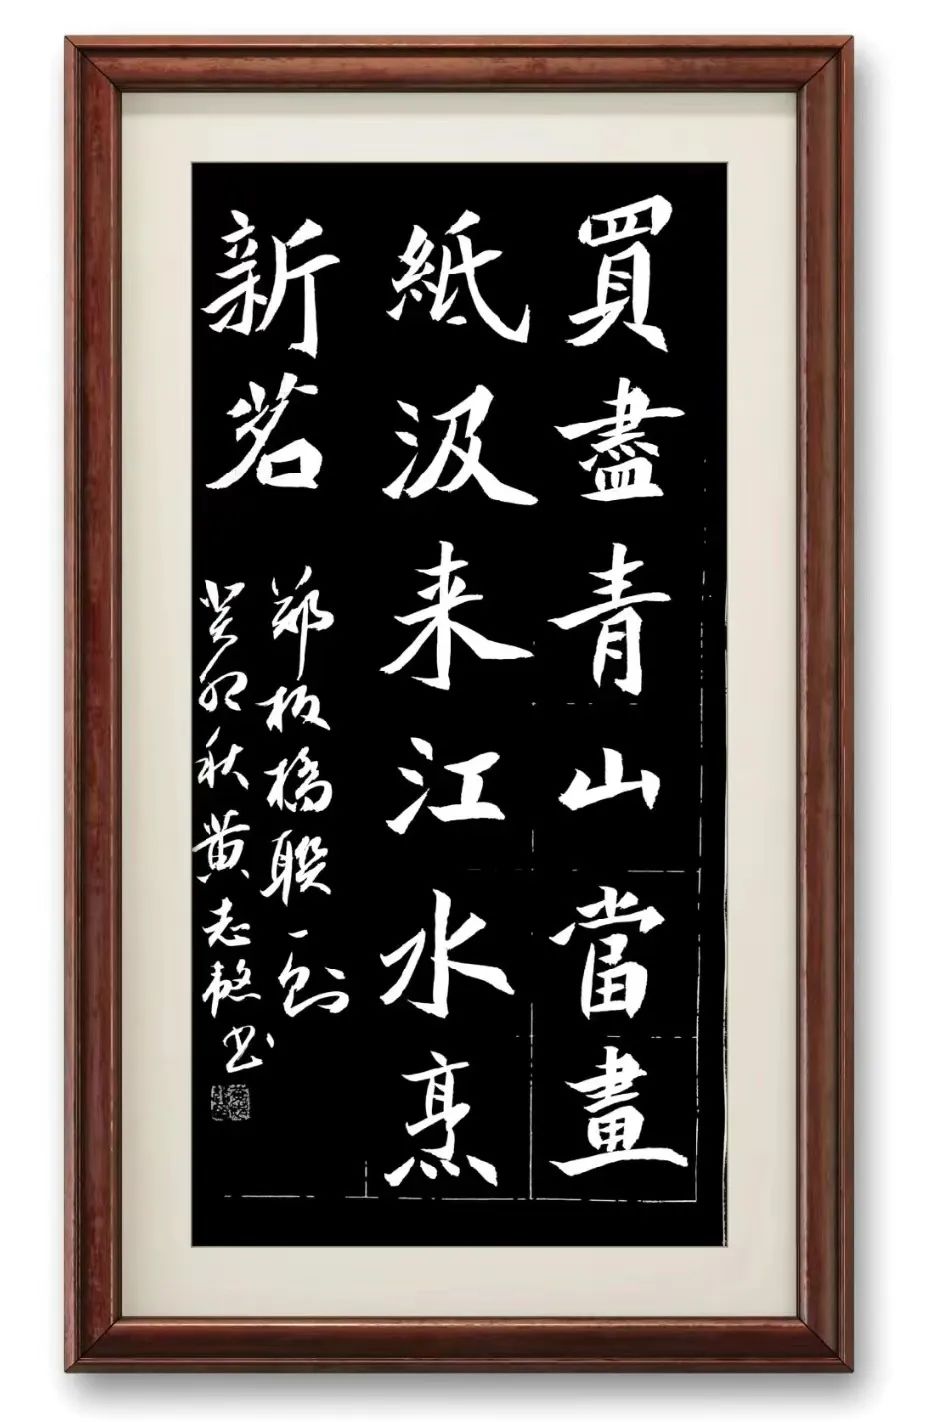 買盡青山當畫
紙汲来江水烹
新茗
郑板橋聯一则
癸卯秋黄志懿书